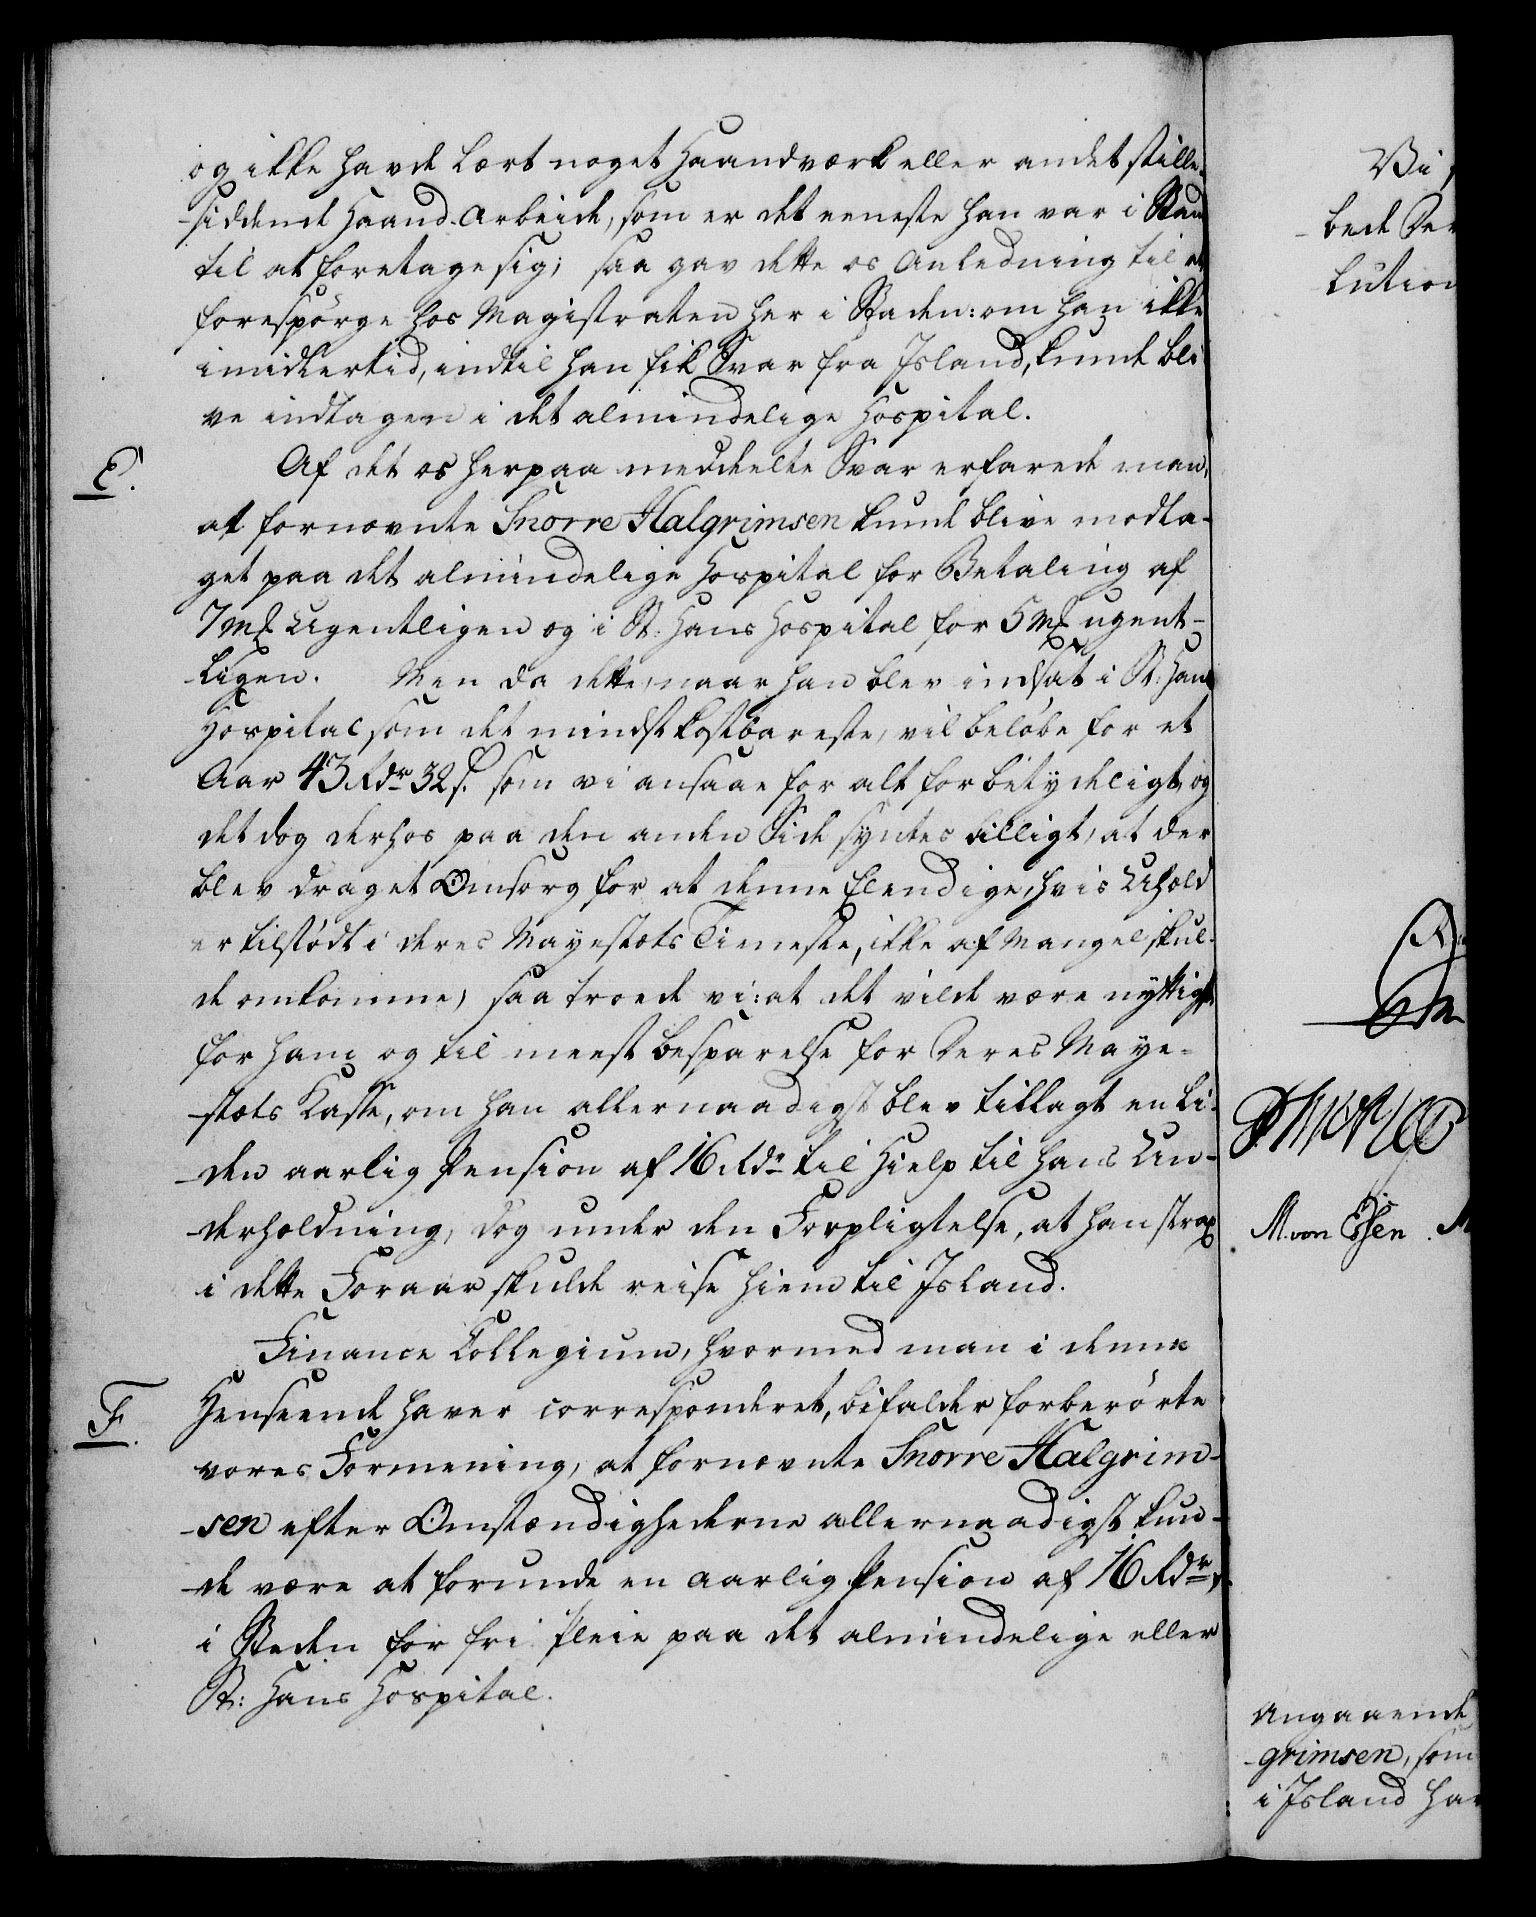 og ikke havde lært noget Haandværk eller andet stille-
-siddende Haand-Arbeide, som er det eeneste han var i Stan
til at foretage sig; saa gav dette os Anledning til at
forespørge hos Magistraten her i Staden: om han ikke
imidlertid, indtil han fik Svar fra Island, kunde bli
ve indtagen i det almindelige Hospital.
E.
Af det os herpaa meddeelte Svar erfarede man,
at fornævnte Snorre Halgrimsen kunde blive modta-
get paa det almindelige Hospital for Betaling af
7 mk Ugentligen og i St: Hans Hospital for 5 mk ugent-
-ligen. Men da dette, naar han blev indsat i St: Hans
Hospital, som det mindst kostbareste, vil beløbe for et
Aar 43 Rdr 32 s. som vi ansaae for alt for betydeligt, og
det dog derhos paa den anden Side syntes billigt, at der
blev draget Omsorg for at denne Elendige, hvis Uhold
er tilstødt i deres Mayestæts Tieneste, ikke af Mangel skul-
de omkomme, saa troede vi: at det vilde være nyttigst
for ham og til meest besparelse for Deres Maye-
-stæts Kasse, om han allernaadigst blev tillagt en li-
-den aarlig Pension af 16 Rdr til Hielp til hans Un-
-derholdning, dog under den Forpligtelse, at han strax
i dette Foraar skulde reise hiem til Island.
Finance Collegium, hvormed man i denne
F.
Henseende haver correspondéret, bifalder forberørte
vores Formening, at fornævnte Snorre Halgrim-
-sen efter Omstændighederne allernaadigst kun-
-de være at forunde en aarlig Pension af 16 Rdr,
i Steden for fri Pleie paa det almindelige eller
St: Hans Hospital.
Vi
bede De
lution
M. von Essen. M
Angaaende
-grimsen, som
i Island ha